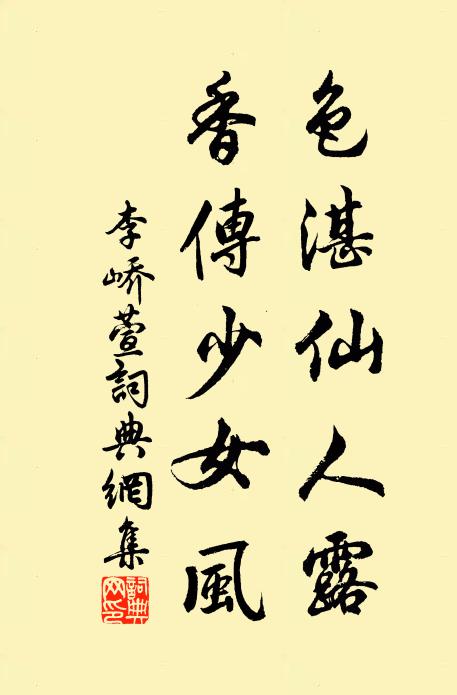 色湛仙人露
香傳少女風
李嶠萱詞典網集
詞典網印